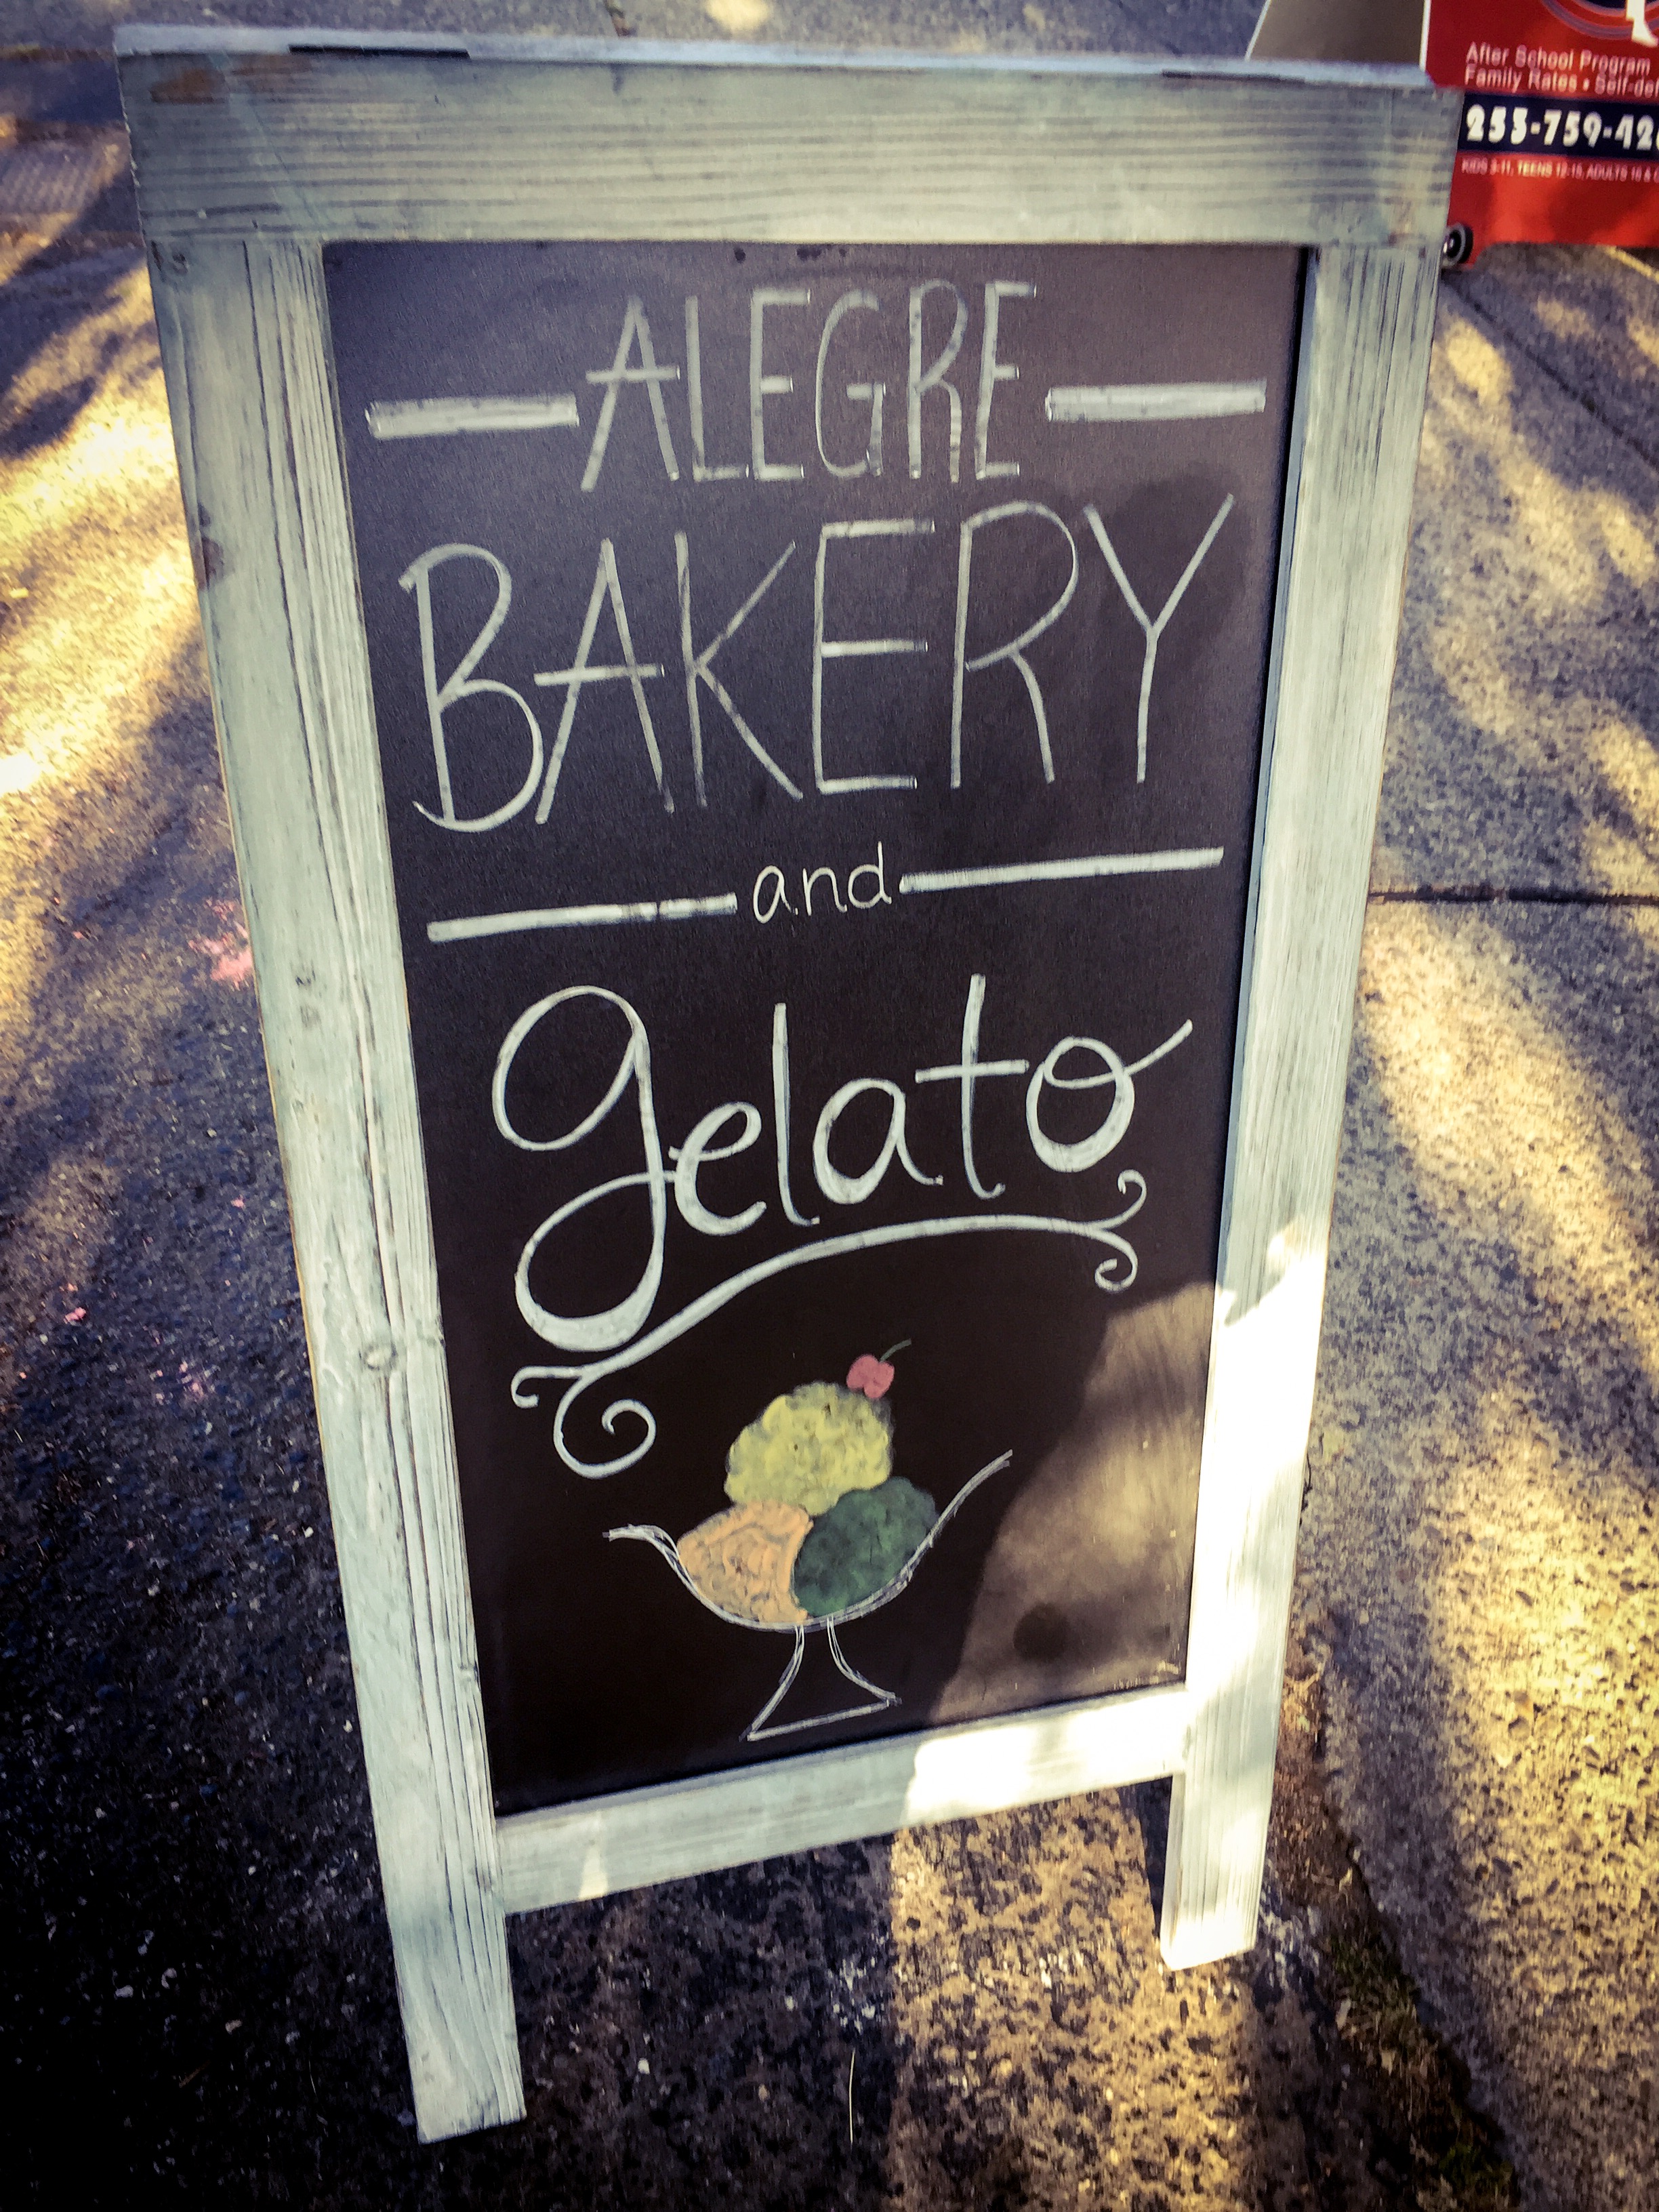 ALEGRE
BAKERY
and
gelato
After School Program
Family Rates • Self-def
253-759-426
KIDS 3-11, TEENS 12-15, ADULTS 16 &